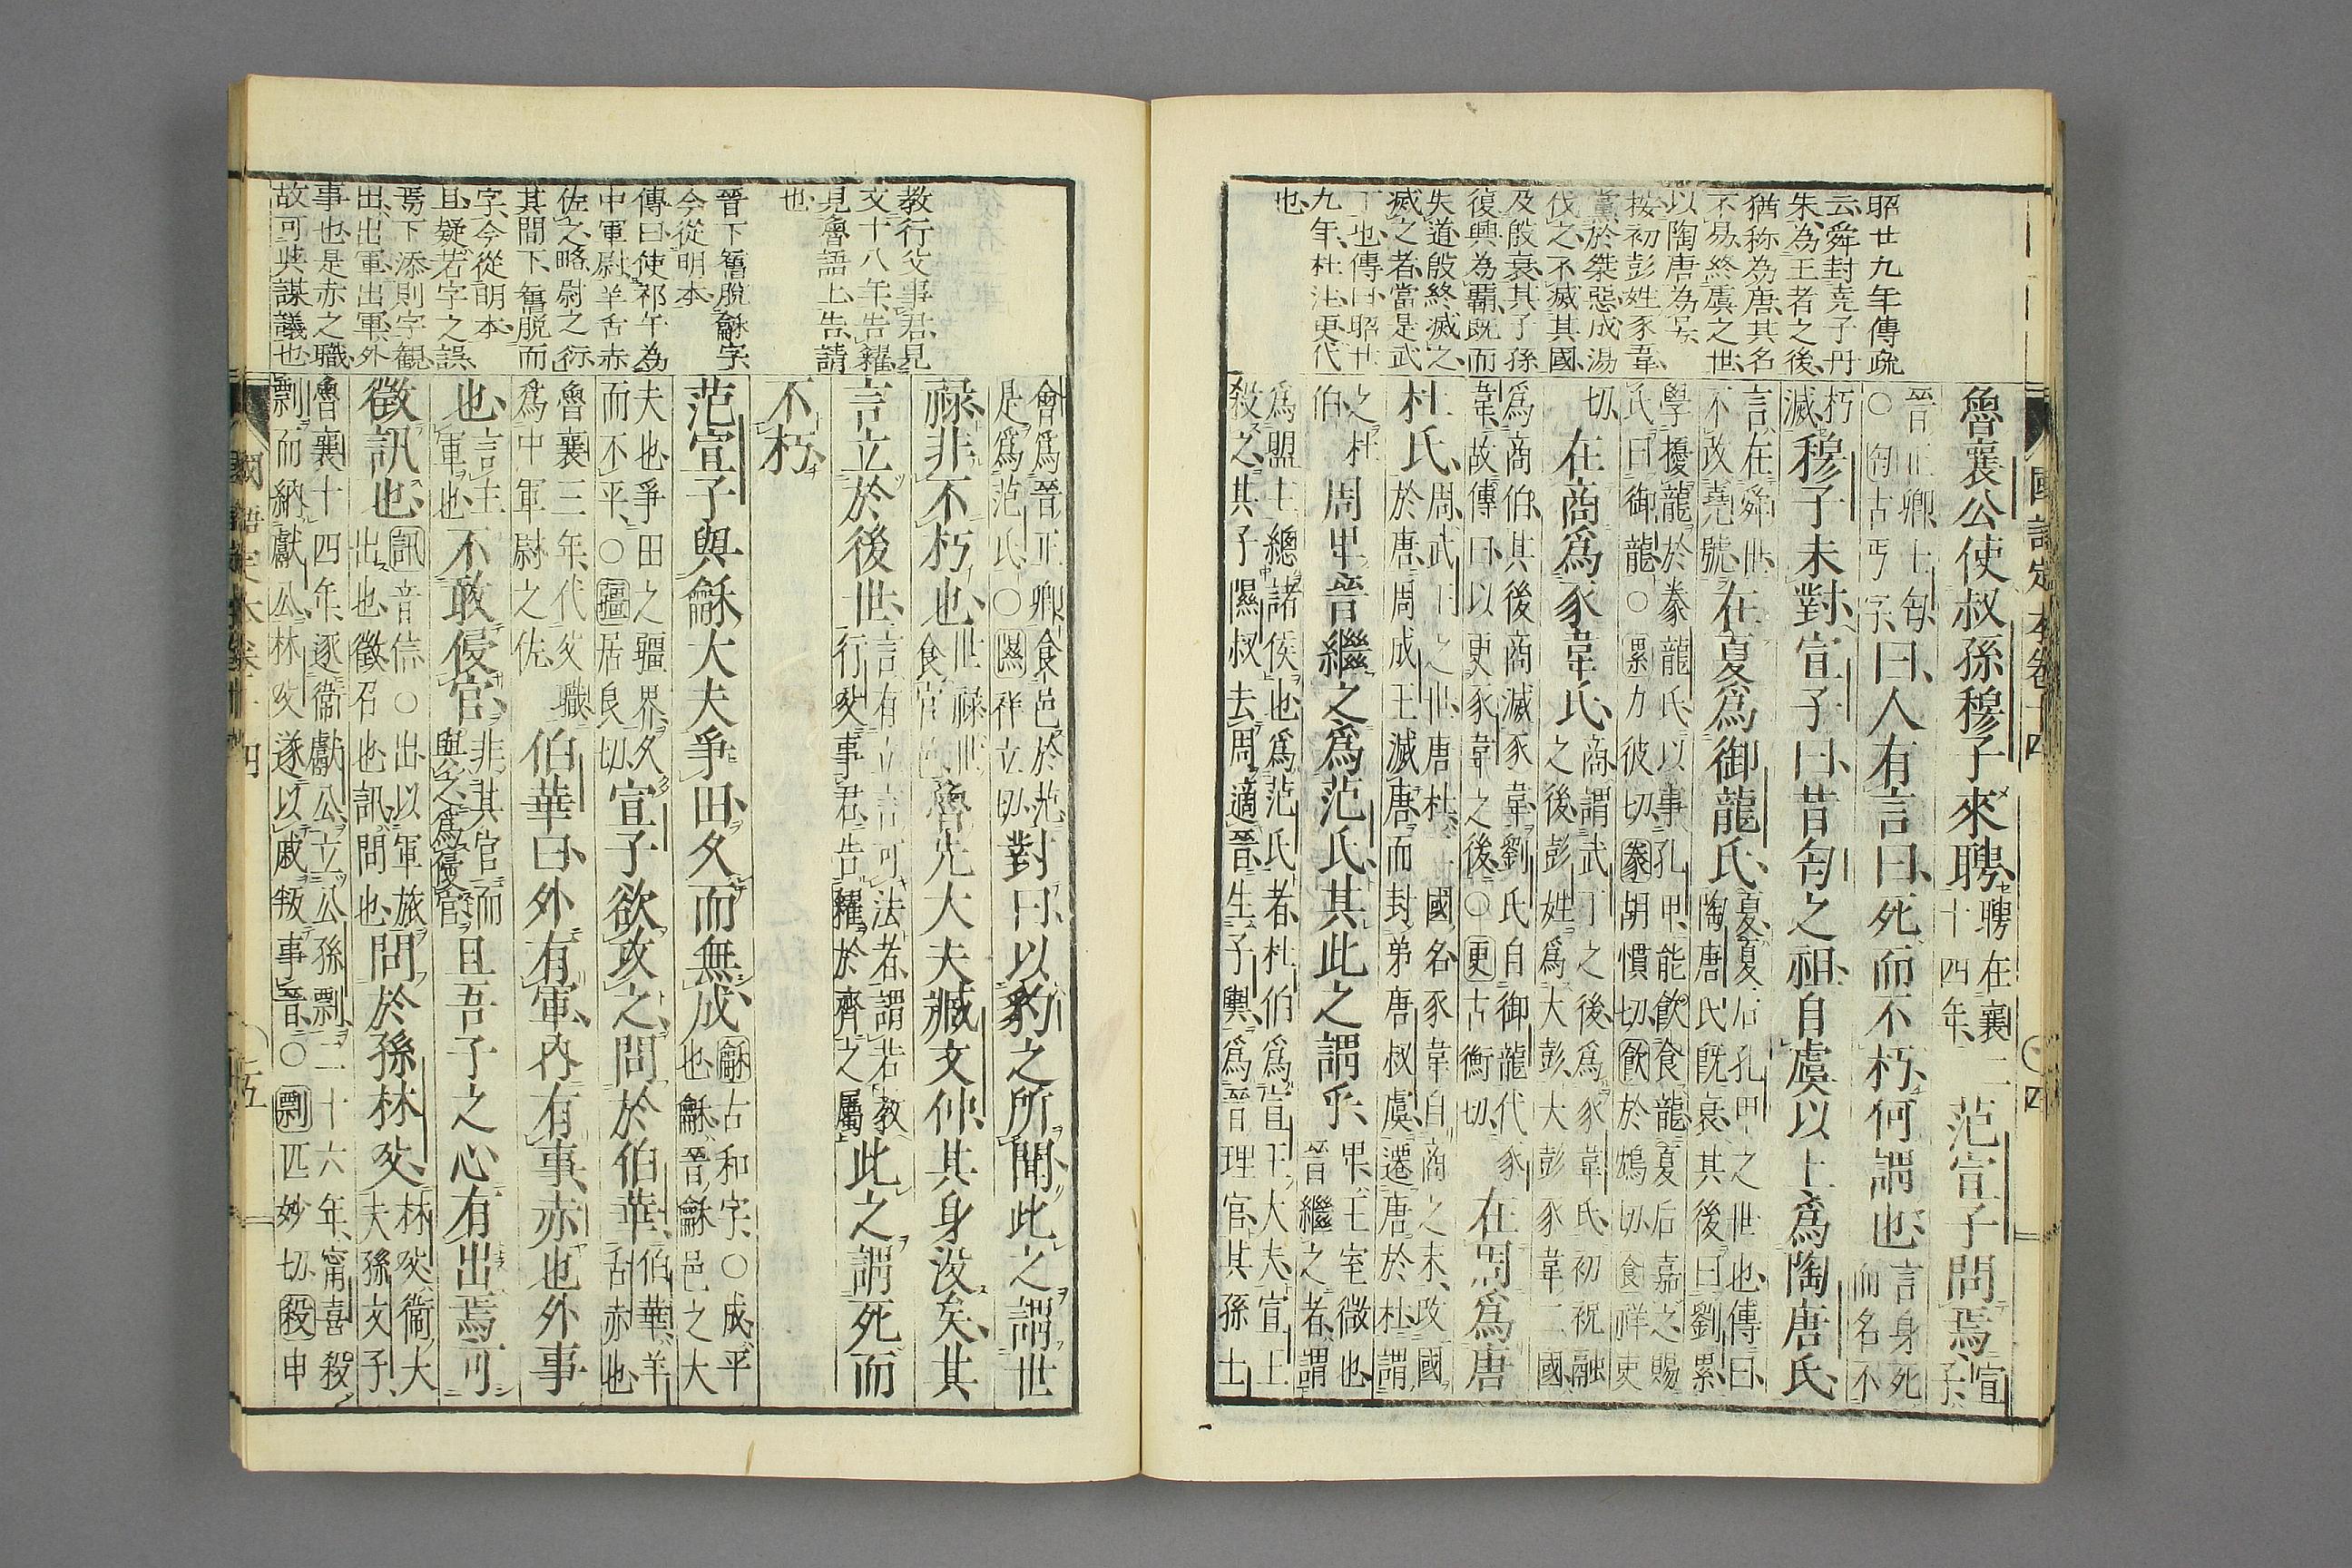 國語定本卷十四
四
昭廿九年傳疏
云舜封堯子丹
朱為王者之後
猶称為唐其名
不易終虞之世
以陶唐為号
按初彭姓豕韋
黨於桀惡成湯
伐之不滅其國
及殷衰其子孫
復興為覇既而
失道殷終滅之
滅之者當是武
丁也傳曰昭廿
九年杜注更代
也
魯襄公使叔孫穆子來聘聘在襄二十四年范宣子問焉宣子
晉正卿士匄○匄古丐字曰人有言曰死而不朽何謂也言身死而名不
朽滅穆子未對宣子曰昔匄之祖自虞以上為陶唐氏
言在舜世不改堯號在夏為御龍氏夏夏后孔甲之世也傳曰陶唐氏既衰其後曰劉累
學擾龍於豢龍氏以事孔甲能飲食龍夏后嘉之賜氏曰御龍○累力彼切豢胡慣切飲於鴆切食祥吏
切在商為豕韋氏商謂武丁之後為豕韋氏初祝融之後彭姓為大彭大彭豕韋二國
為商伯其後商滅豕韋劉氏自御龍代豕韋故傳曰以更豕韋之後○更古衡切在周為唐
杜氏周武王之世唐杜二國名豕韋自商之末改國於唐周成王滅唐而封弟唐叔虞遷唐於杜謂
之杜伯周卑晉繼之為范氏其此之謂乎卑王室微也晉繼之者謂
為盟主總諸侯也為范氏者杜伯為宣王大夫宣王殺之其子隰叔去周適晉生子輿為晉理官其孫士
教行父事君見
文十八年告糴
見魯語上告請
也
晉下舊脫龢字
今從明本
傳曰使祁午為
中軍尉羊舌赤
佐之略尉之衍
其間下舊脱而
字今從明本
且疑若字之誤
焉下添則字観
出出軍出軍外
事也是赤之職
故可共謀議也
會為晉正卿食邑於范是為范氏○隰祥立切對曰以豹之所聞此之謂世
祿非不朽也世祿世食官邑魯先大夫臧文仲其身沒矣其
言立於後世言有立言可法者謂若教行父事君告糴於齊之屬此之謂死而
不朽
范宣子與龢大夫爭田久而無成龢古和字○成平也龢晉龢邑之大
夫也爭田之疆界久而不平○疆居良切宣子欲攻之問於伯華伯華羊舌赤也
魯襄三年代父職為中軍尉之佐伯華曰外有軍內有事赤也外事
也言主軍也不敢侵官非其官而與之為侵官且吾子之心有出焉可
徵訊也訊音信○出以軍旅出也徵召也訊問也問於孫林父林父衛大夫孫文子
魯襄十四年逐衛獻公立公孫剽二十六年甯喜殺剽而納獻公林父遂以戚叛事晉○剽匹妙切殺申
國語定本卷十四
五